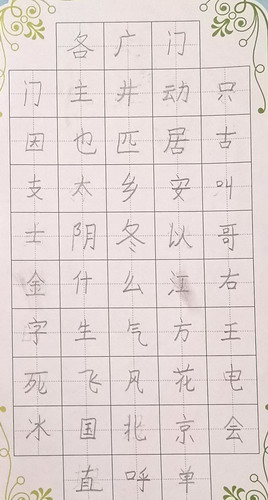 各广门
门主井动只
因也匹居古
支太乡安叫
士阴冬以哥
金什么江右
字生气方王
死飞风花电
冰国北京会
直呼单